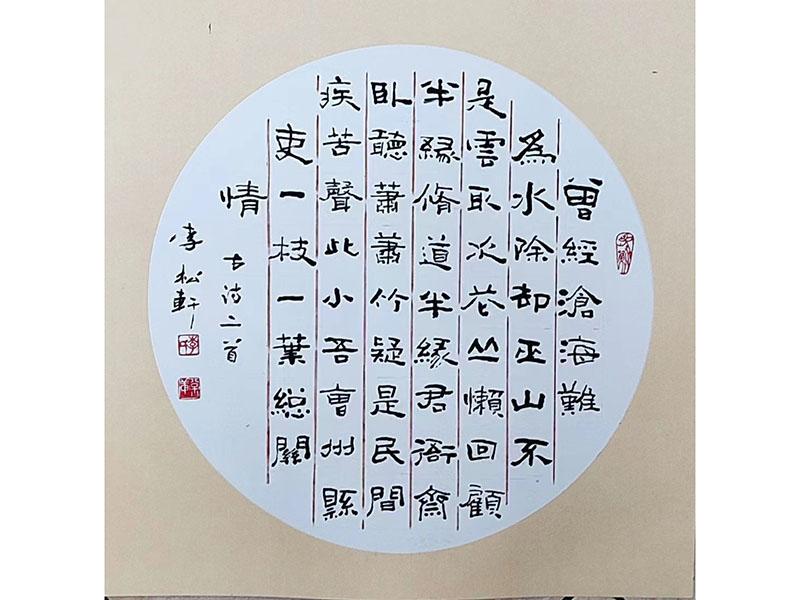 曾經滄海難
為水除却巫山不
是雲取次花丛懶回顧
半緣脩道半緣君衙齋
臥聽蕭蕭竹疑是民間
疾苦聲此小吾曹州縣
吏一枝一葉總關
情
古诗二首
李松軒